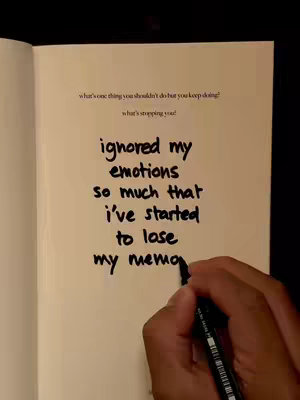 what's one thing you shouldn't do but you keep doing?
what's stopping you?
ignored my
emotions
so much that
i've started
to lose
my memo